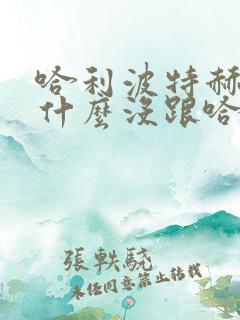 哈利波特赫
什麼沒跟哈
張軼驍
未经同意禁止转载